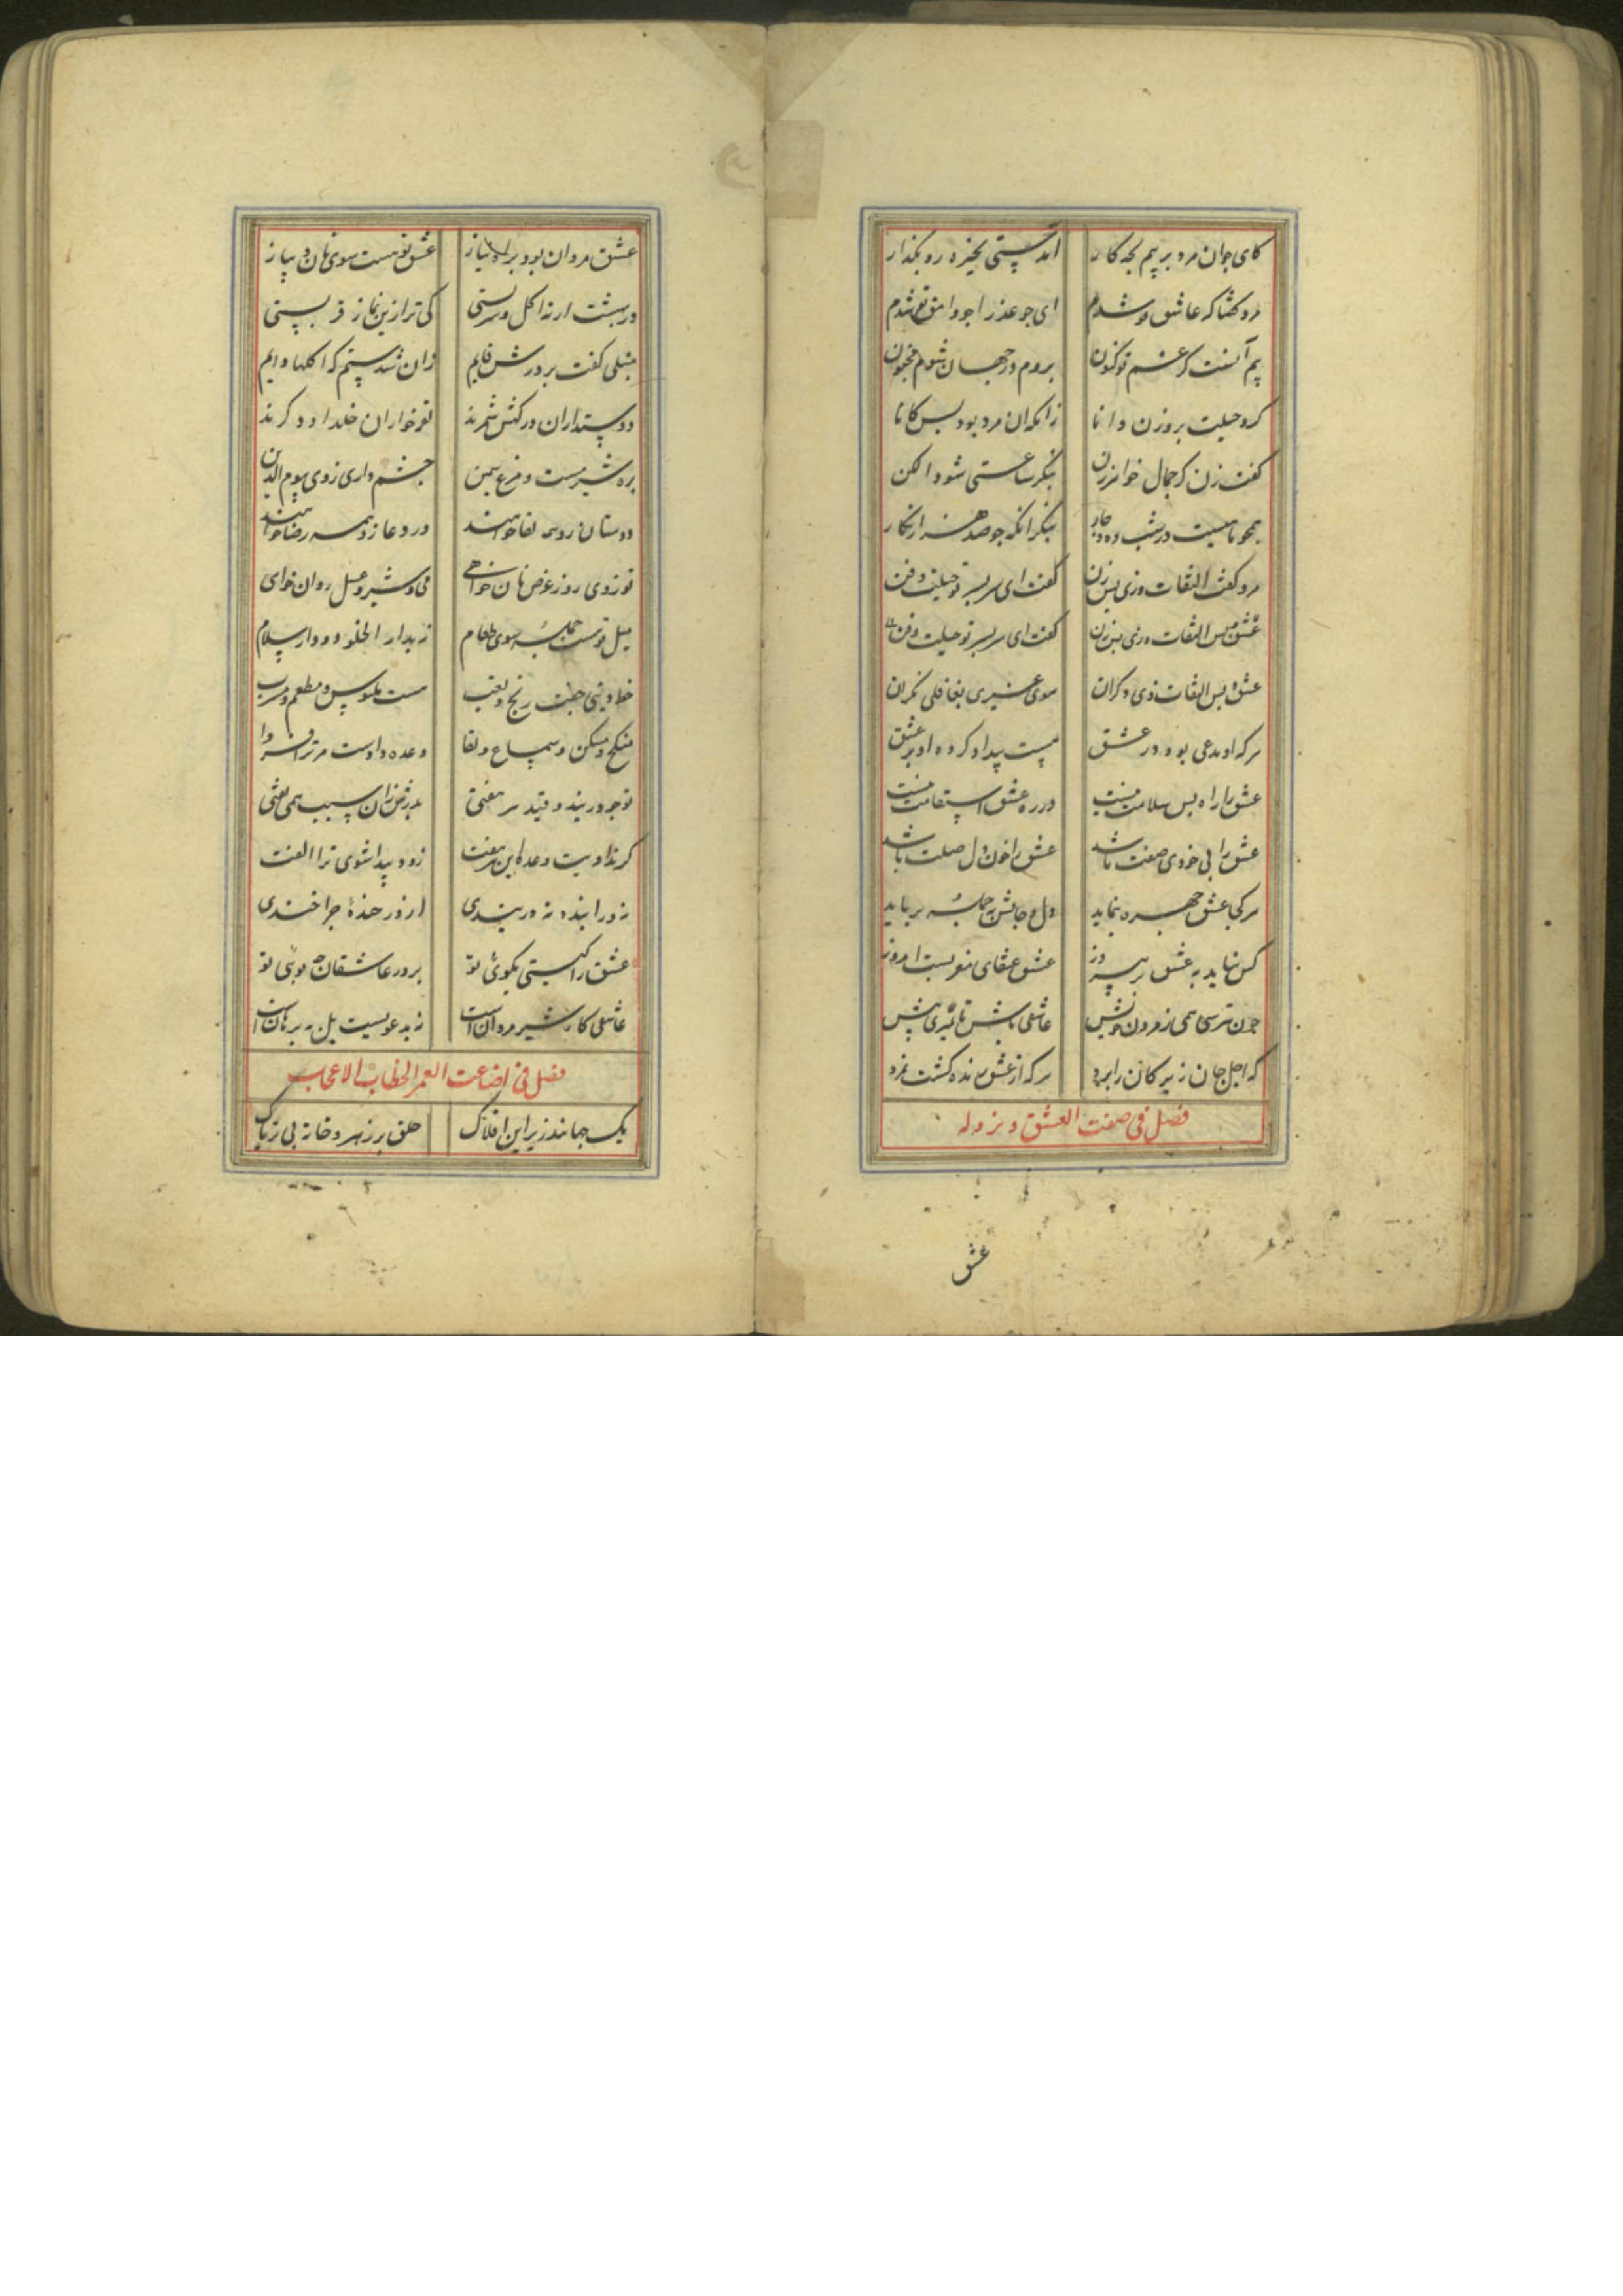 کای جوان مرد بر پیم بچه کار آمدستی بخیره رو بگذار
مرد گفتا که عاشق تو شدم ای چو عذرا چو وامق تو شدم
بیم آنست کز غم تو کنون بروم در جهان شوم مجنون
کرد حیلت برو زن دانا زانکه آن مرد بود بس کانا
گفت زن گر جمال خواهر من بنگری ساعتی شود الکن
همچو ماهیست در شب ده و چار بنگر آنک چو صد هزار نگار
مرد کفت التفات زی پس زن گفت ای سر بسر تو حیلت و فن
عشق و پس التفات زی پس زن گفت ای سر بسر تو حیلت و فن
عشق و پس التفات زی دگران سوی غیری بغافلی نگران
هر که او مدعی بود در عشق هست بیداد کرده او بر عشق
عشق را راه بس سلامت نیست در ره عشق استقامت نیست
عشق را بی خودی صفت باشد عشق را خون دل صلت باشد
هر کجا عشق چهره بنماید دل و جانش بجمله برباید
کس نیاید به عشق بر پیروز عشق عنقای مغربست امروز
چون نترسی همی ز مردن خویش عاشقی باش تا نمیری بیش
که اجل جان زیرکان را برد هر که از عشق زنده گشت نمرد
فصل فی صفت العشق و نزوله
عشق
عشق مردان بود براه نیاز عشق تو هست سوی نان و پیاز
در بهشت ار نه اکل و شربستی کی ترا زین نماز قربستی
منبلی گفت بر درش قایم زان شدستم که اکلها دایم
دوستداران درگهش شمرند تو خواران خلد او دگرند
بره شیر مست و مرغ سمین چشم داری ز وی بیوم الدین
دوستان زو همه لقا خواهند در دعا زو همه رضا خواهند
تو ز وی روز عرض نان خواهی می و شیر و عسل روان خواهی
میل تو هست جمله سوی طعام نه بدار الخلود و دار سلام
خط دینی جفت رنج و تعب هست ملبوس و مطعم و مشرب
منکح و مسکن و سماع و لقا وعده دادست مر ترا فردا
تو چو در بند و قید هر هفتی بدرش زان سبب همی تفتی
گر نداریت وعده این هر هفت زود پیدا شوی ترا الفت
نه ورا بنده نه دربندی ار زر خنده چرا خندی
عشق را کیستی نگوئی تو بر در عاشقان چه بوئی تو
عاشقی کار شیر مردانست نه بدعویست بل به برهانست
فصل فی اضاعت العمر الخطاب الاعجاب
یک جهانند زیر این افلاک حلق پر زهر و خانه بی تریاک